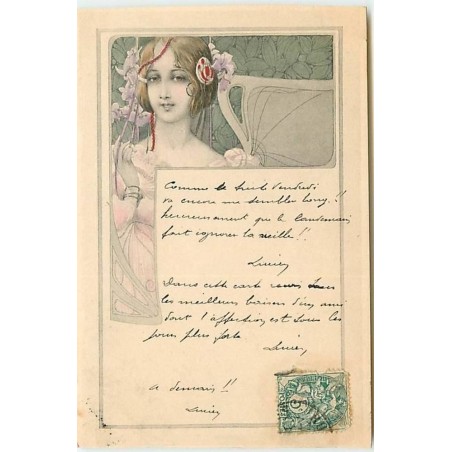 Comme le Vendredi
va encore me sembler long !!
heureusement que le lendemain
fait ignorer la veille !!
Lucien
Dans cette carte
les meilleurs baisers d'un ami
dont l'affection est tous les
jours plus forte
Lucien
a demain !!
Lucien